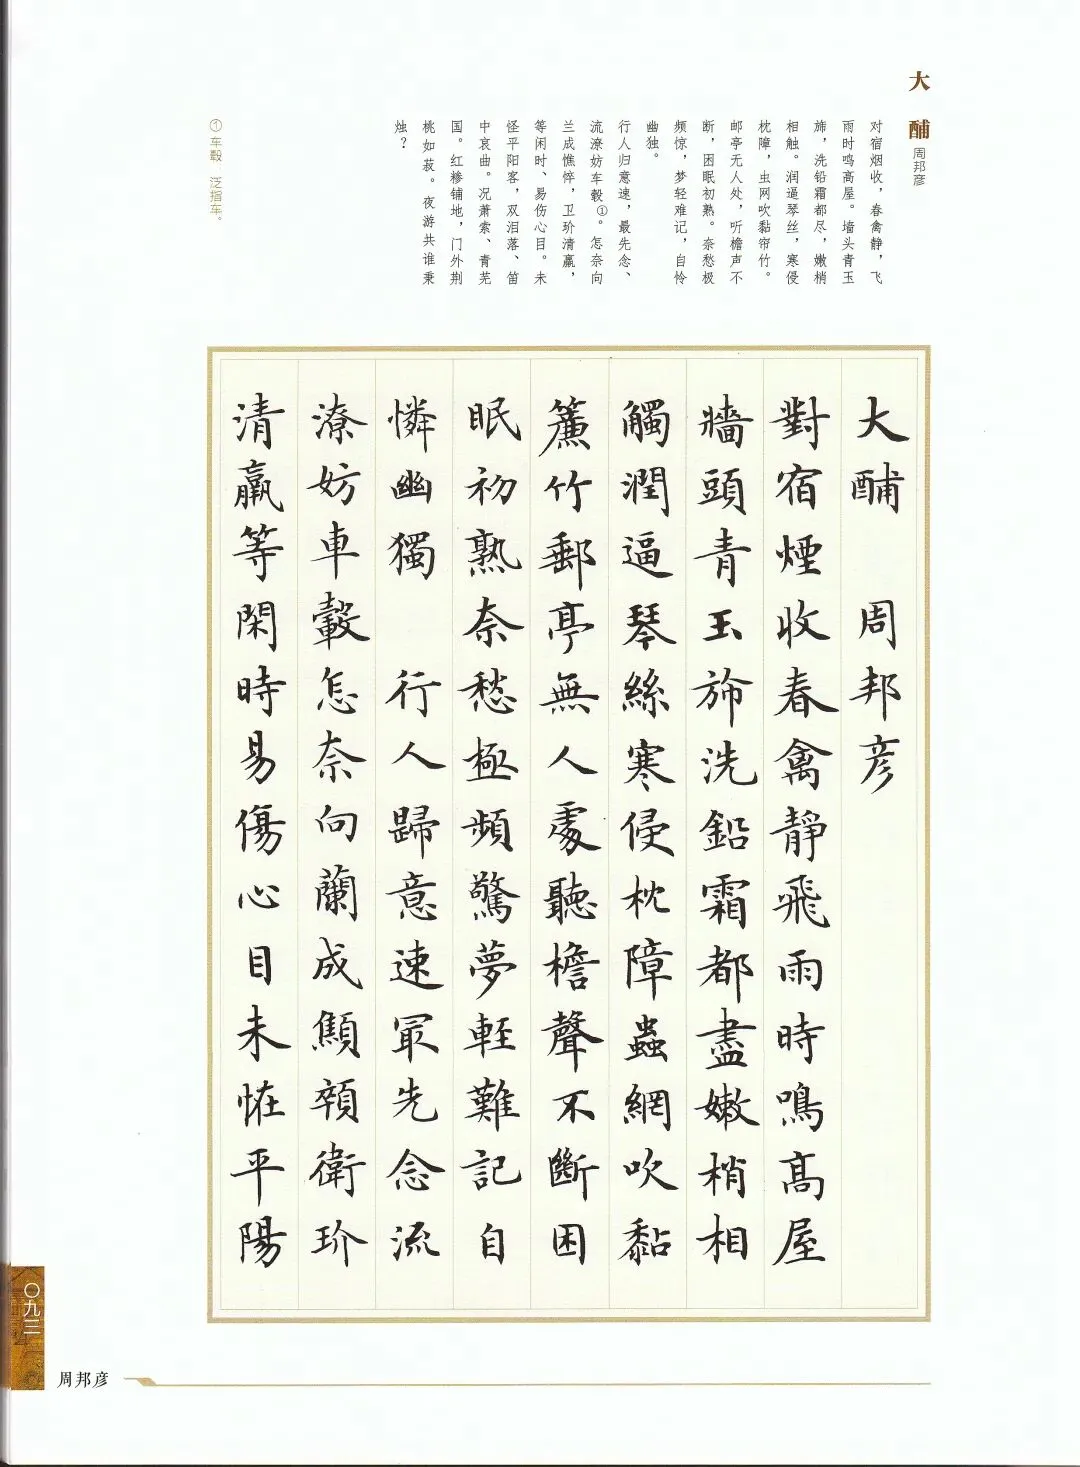 大酺
周邦彦
对宿烟收，春禽静，飞
雨时鸣高屋。墙头青玉
旆，洗铅霜都尽，嫩梢
相触。润逼琴丝，寒侵
枕障，虫网吹黏帘竹。
邮亭无人处，听檐声不
断，困眠初熟。奈愁极
频惊，梦轻难记，自怜
幽独。
行人归意速，最先念、
流潦妨车毂①。怎奈向
兰成憔悴，卫玠清羸，
等闲时、易伤心目。未
怪平阳客，双泪落、笛
中哀曲。况萧索、青芜
国。红糁铺地，门外荆
桃如菽。夜游共谁秉
烛？
①车毂 泛指车。
大酺 周邦彦
對宿煙收春禽靜飛雨時鳴高屋
牆頭青玉旆洗鉛霜都盡嫩梢相
觸潤逼琴絲寒侵枕障蟲網吹黏
簾竹郵亭無人處聽檐聲不斷困
眠初熟奈愁極頻驚夢輕難記自
憐幽獨 行人歸意速最先念流
潦妨車轂怎奈向蘭成顦顇衛玠
清羸等閑時易傷心目未恠平陽
〇九三
周邦彦